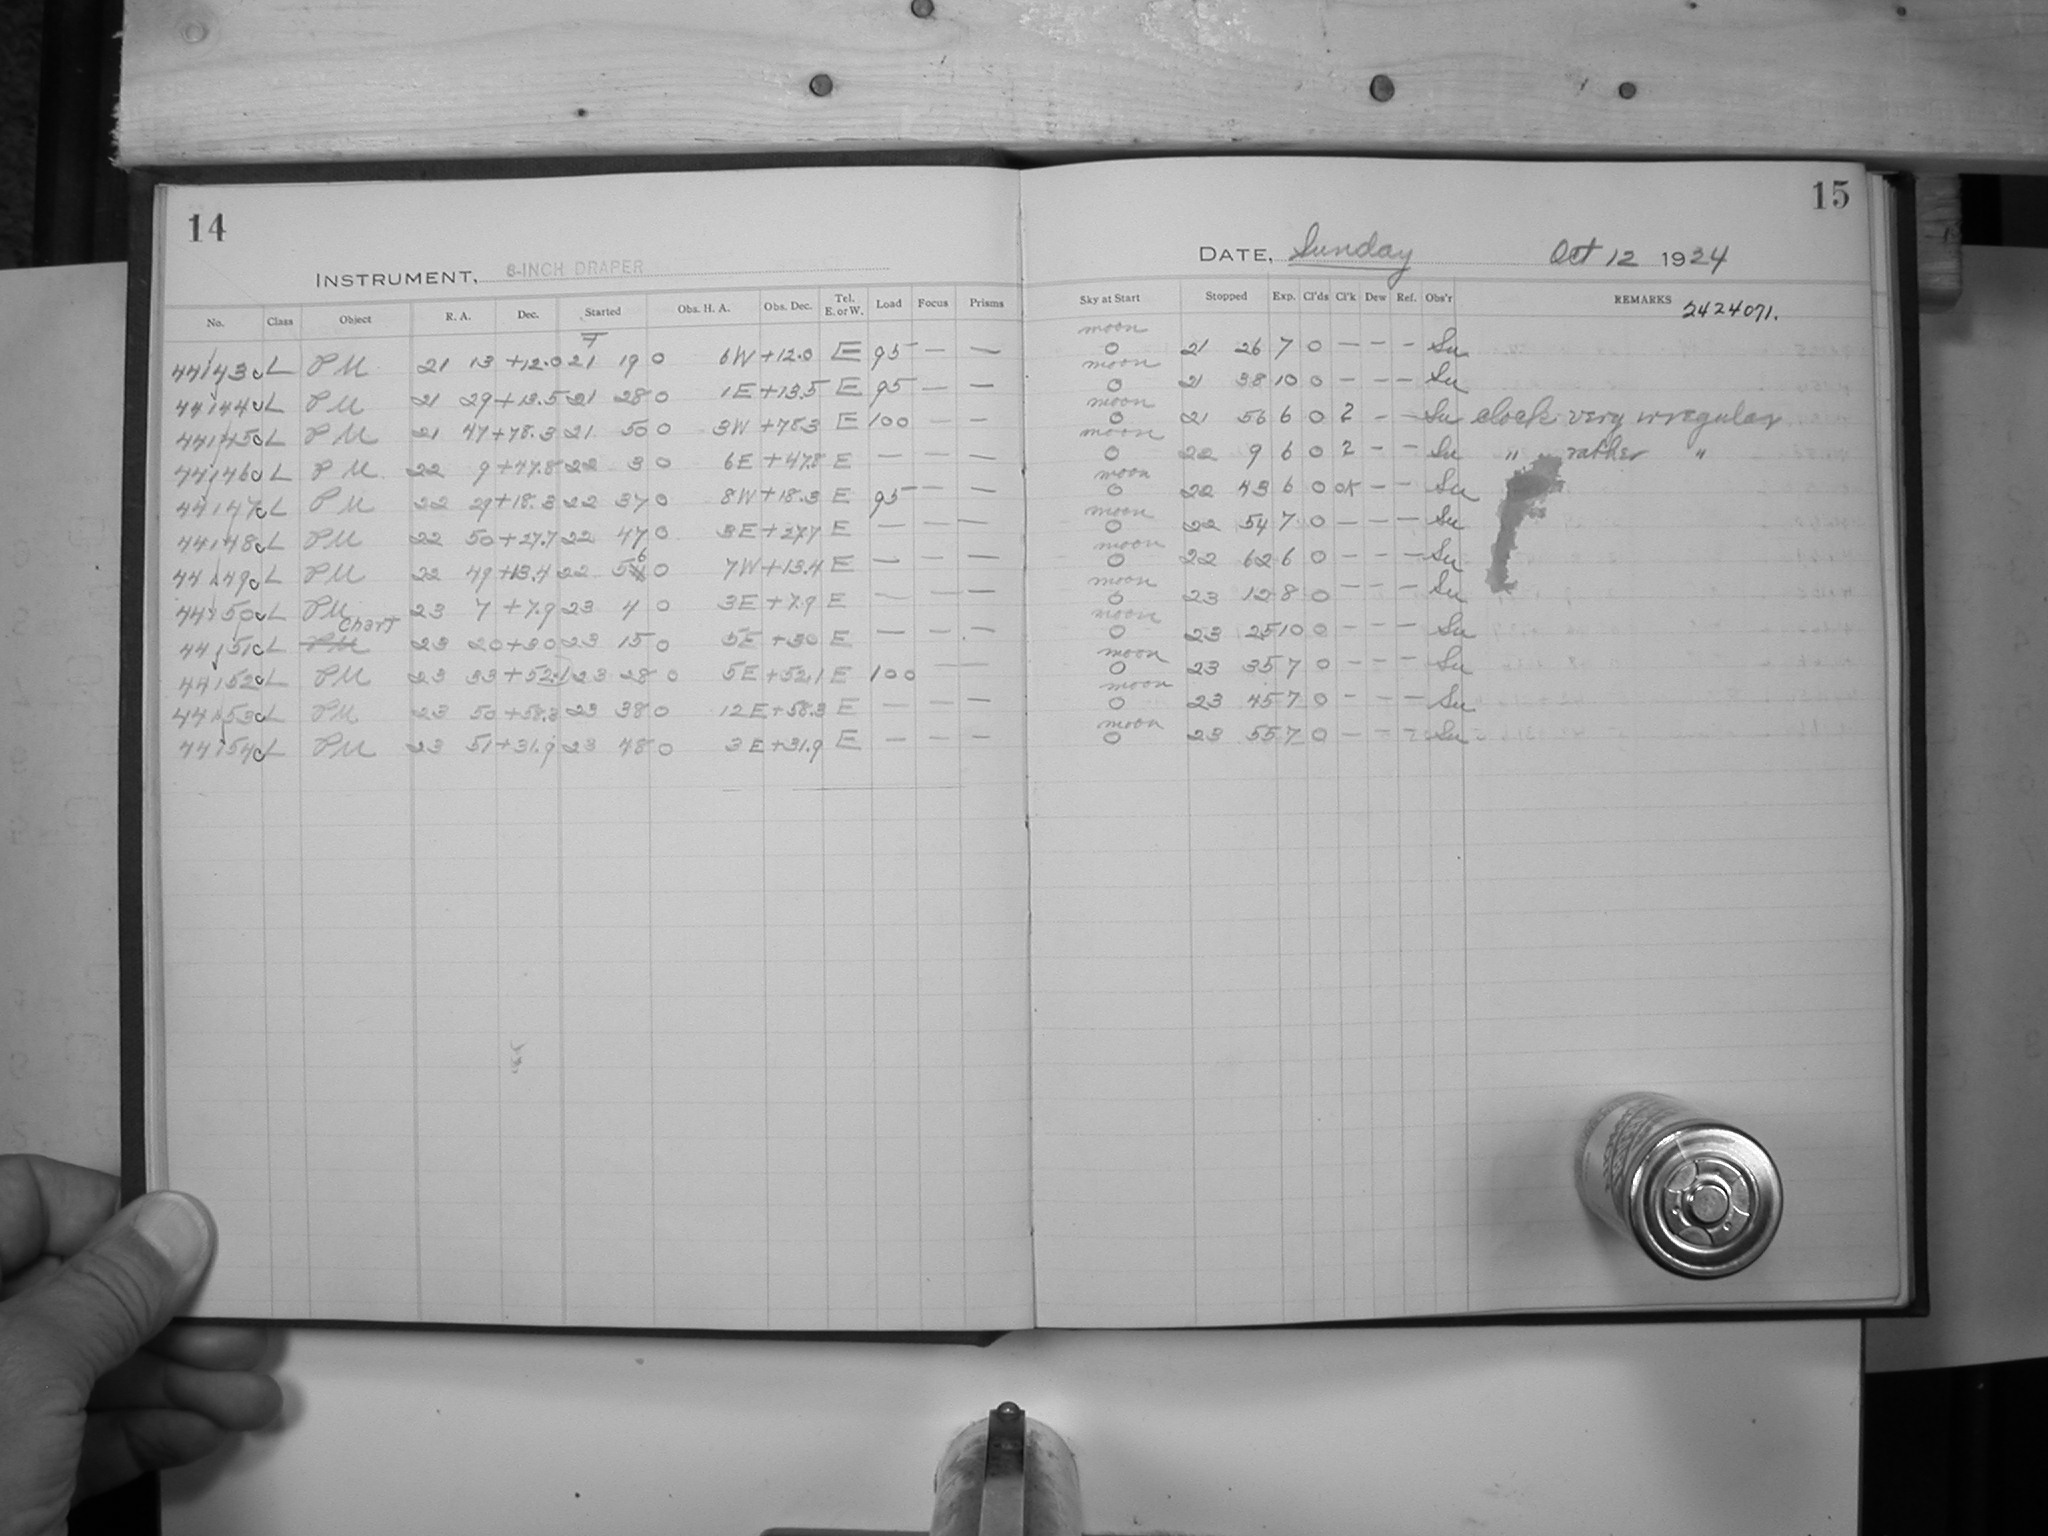 14
INSTRUMENT, 8-INCH DRAPER
No. Class Object R. A. Dec. Started Obs. H. A. Obs. Dec. Tel. E. or W. Load Focus Prisms
44143 L PM 21 13 +12.0 21 19 0 6W +12.0 E 95 — —
44144 L PM 21 29 +13.5 21 28 0 1E +13.5 E 95 — —
44145 L PM 21 47 +78.3 21 50 0 3W +78.3 E 100 — —
44146 L PM 22 9 +47.8 22 3 0 6E +47.8 E — — —
44147 L PM 22 29 +18.3 22 37 0 8W +18.3 E 95 — —
44148 L PM 22 50 +27.7 22 47 0 3E +27.7 E — — —
44149 L PM 22 49 +13.4 22 56 0 7W +13.4 E — — —
44150 L PM 23 7 +7.9 23 4 0 3E +7.9 E — — —
44151 L PM Chart 23 20 +30 23 15 0 5E +30 E — — —
44152 L PM 23 33 +52.1 23 28 0 5E +52.1 E 100 — —
44153 L PM 23 50 +58.3 23 38 0 12E +58.3 E — — —
44154 L PM 23 51 +31.9 23 48 0 3E +31.9 E — — —
15
DATE, Sunday Oct 12 1924
Sky at Start Stopped Exp. Cl'ds Cl'k Dew Ref. Obs'r REMARKS
2424071.
moon 0 21 26 7 0 — — — Su
moon 0 21 38 10 0 — — — Su
moon 0 21 56 6 0 ? — — Su clock very irregular
moon 0 22 9 6 0 ? — — Su " rather "
moon 0 22 43 6 0 OK — — Su
moon 0 22 54 7 0 — — — Su
moon 0 22 62 6 0 — — — Su
moon 0 23 12 8 0 — — — Su
moon 0 23 25 10 0 — — — Su
moon 0 23 35 7 0 — — — Su
moon 0 23 45 7 0 — — — Su
moon 0 23 55 7 0 — — — Su